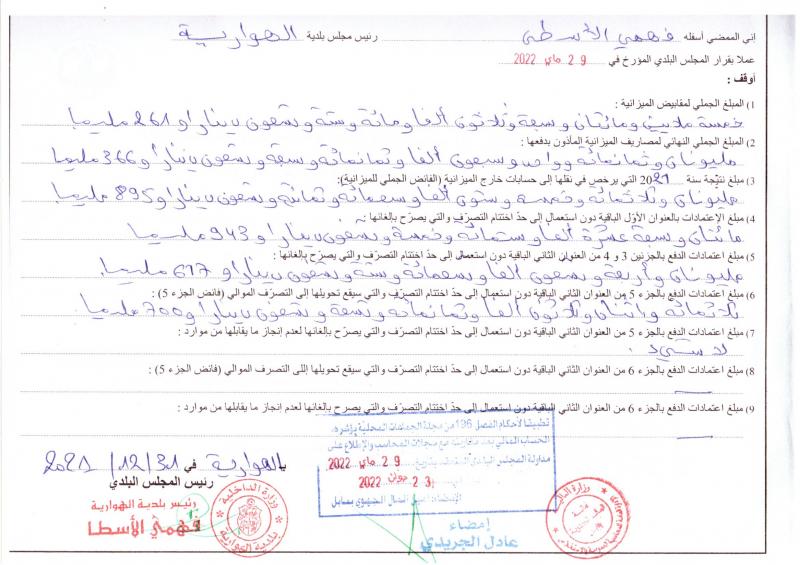 إني الممضي أسفله فهمي الأسطى رئيس مجلس بلدية الهوارية
عملا بقرار المجلس البلدي المؤرخ في 29 ماي 2022
أوقف :
1) المبلغ الجملي لمقابيض الميزانية :
خمسة ملايين ومائتان وسبعة وثلاثون ألفا ومائة وستة وتسعون دينارا و 261 مليما
2) المبلغ الجملي النهائي لمصاريف الميزانية المأذون بدفعها :
مليونان وثمانمائة وواحد وسبعون ألفا وثمانمائة وسبعة وتسعون دينارا و 366 مليما
3) مبلغ نتيجة سنة 2021 التي يرخص في نقلها إلى حسابات خارج الميزانية (الفائض الجملي للميزانية):
مليونان وثلاثمائة وخمسة وستون ألفا وتسعمائة وثمانية وتسعون دينارا و 895 مليما
4) مبلغ الإعتمادات بالعنوان الأوّل الباقية دون استعمال إلى حدّ اختتام التصرّف والتي يصرّح بإلغائها :
مائتان وسبعة عشرة ألفا وستمائة وخمسة وتسعون دينارا و 943 مليما
5) مبلغ اعتمادات الدفع بالجزئين 3 و 4 من العنوان الثاني الباقية دون استعمال إلى حدّ اختتام التصرّف والتي يصرّح بإلغائها :
مليونان وأربعة وتسعون ألفا وتسعمائة وستة وتسعون دينارا و 617 مليما
6) مبلغ اعتمادات الدفع بالجزء 5 من العنوان الثاني الباقية دون استعمال إلى حدّ اختتام التصرّف والتي سيقع تحويلها إلى التصرّف الموالي (فائض الجزء 5) :
ثلاثمائة واثنان وثلاثون ألفا وثمانمائة وتسعة وتسعون دينارا و 700 مليما
7) مبلغ اعتمادات الدفع بالجزء 5 من العنوان الثاني الباقية دون استعمال إلى حدّ اختتام التصرّف والتي يصرّح بإلغائها لعدم إنجاز ما يقابلها من موارد :
لا شيء .
8) مبلغ اعتمادات الدفع بالجزء 6 من العنوان الثاني الباقية دون استعمال إلى حدّ اختتام التصرّف والتي سيقع تحويلها إلى التصرف الموالي (فائض الجزء 5) :
9) مبلغ اعتمادات الدفع بالجزء 6 من العنوان الثاني الباقية دون استعمال إلى حدّ اختتام التصرّف والتي يصرح بإلغائها لعدم إنجاز ما يقابلها من موارد :
تطبيقا لأحكام الفصل 196 من مجلة الجماعات المحلية يؤشر
الحساب المالي بعد مقارنته مع سجلات المحاسب والإطلاع على
مداولة المجلس البلدي المنعقد بتاريخ 29 ماي 2022
23 جوان 2022
الإمضاء: أمين المال الجهوي بنابل
إمضاء
عادل الجريدي
بالهوارية في 2021/12/31
رئيس المجلس البلدي
رئيس بلدية الهوارية
فهمي الأسطا
وزارة الداخلية
بلدية الهوارية
وزارة المالية